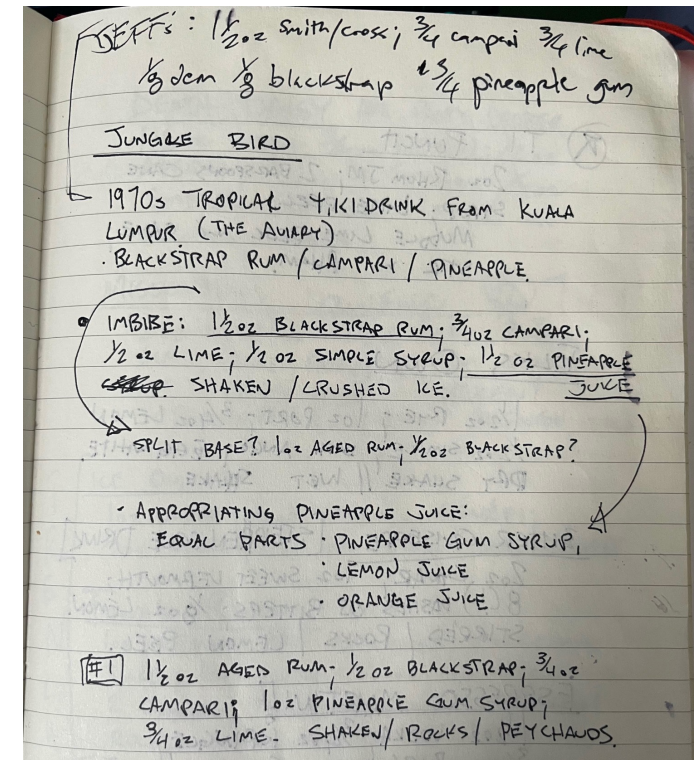 JEFF's: 1 1/2 oz Smith/cross; 3/4 campari 3/4 lime
1/8 dem 1/8 blackstrap 3/4 pineapple gum
JUNGLE BIRD
1970s TROPICAL TIKI DRINK FROM KUALA
LUMPUR (THE AVIARY)
· BLACKSTRAP RUM / CAMPARI / PINEAPPLE.
• IMBIBE: 1 1/2 oz BLACKSTRAP RUM; 3/4 oz CAMPARI;
1/2 oz LIME; 1/2 oz SIMPLE SYRUP; 1 1/2 oz PINEAPPLE
SHAKEN / CRUSHED ICE. JUICE
SPLIT BASE? 1 oz AGED RUM; 1/2 oz BLACKSTRAP?
· APPROPRIATING PINEAPPLE JUICE:
EQUAL PARTS · PINEAPPLE GUM SYRUP,
· LEMON JUICE
· ORANGE JUICE
#1 1 1/2 oz AGED RUM; 1/2 oz BLACKSTRAP; 3/4 oz
CAMPARI; 1 oz PINEAPPLE GUM SYRUP;
3/4 oz LIME. SHAKEN / ROCKS / PEYCHAUDS.